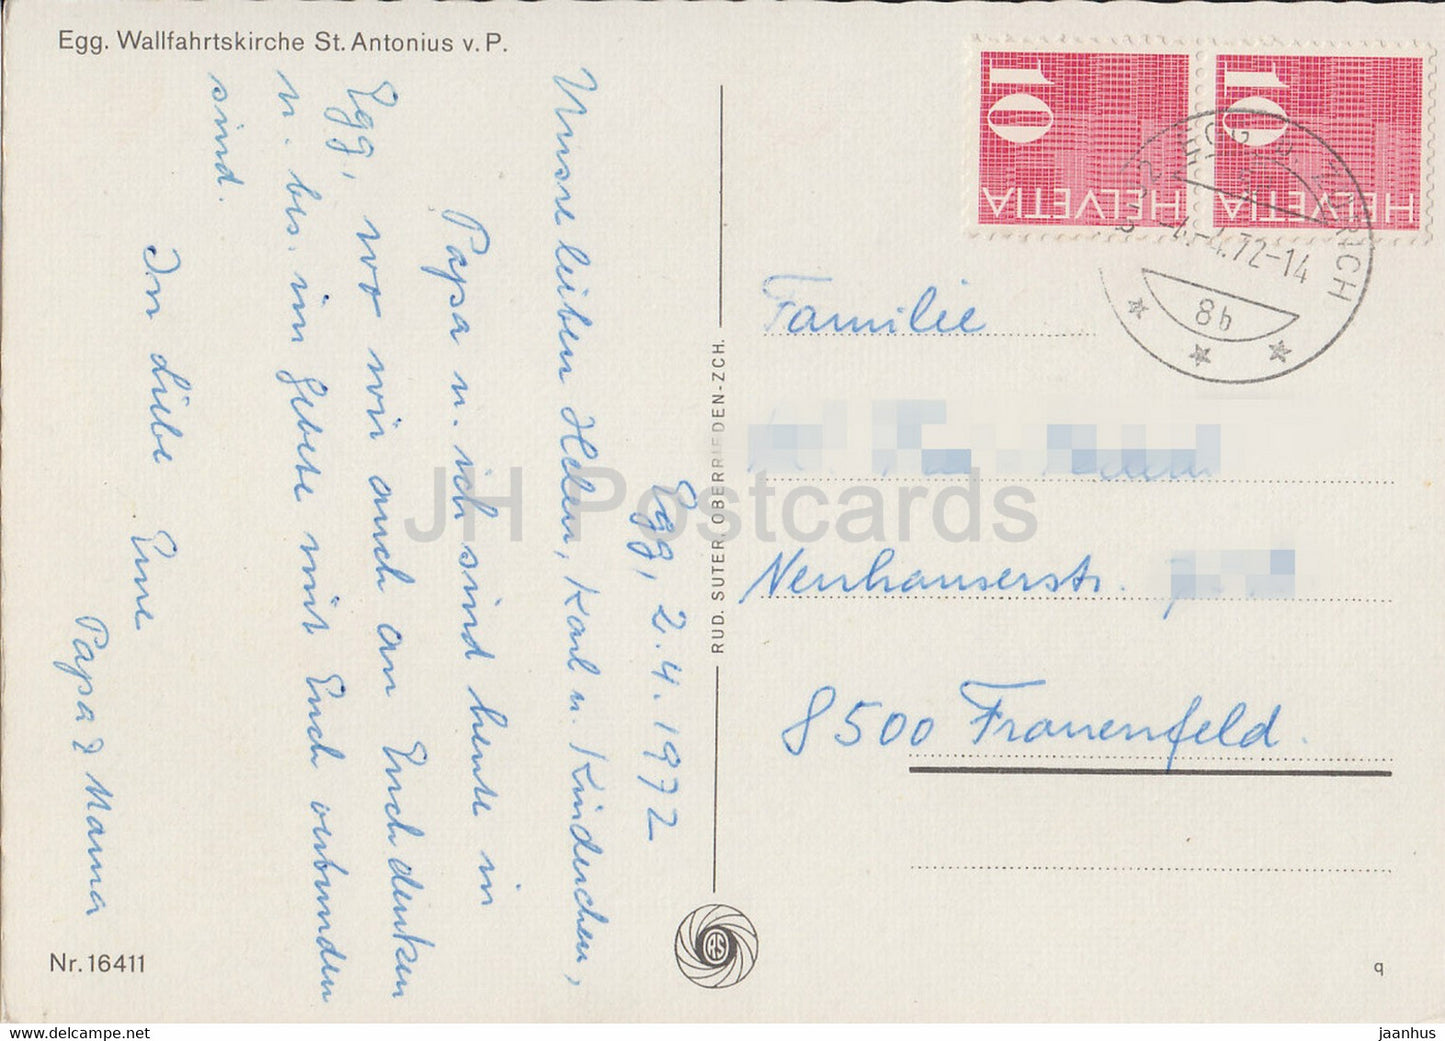 Egg. Wallfahrtskirche St. Antonius v. P.
Egg, 2.4.1972
Unsere lieben Helen, Karl u. Kinderchen,
Papa u. ich sind heute in
Egg, wo wir auch an Euch denken
u. bes. im Gebete mit Euch verbunden
sind.
In Liebe Eure
Papa & Mama
Nr. 16411
RUD. SUTER, OBERRIEDEN-ZCH.
RS
10
HELVETIA
10
HELVETIA
8132 EGG B. ZÜRICH
-4.-4.72-14
8b
Familie
Neuhauserstr.
8500 Frauenfeld.
q
JH Postcards
www.delcampe.net
jaanhus